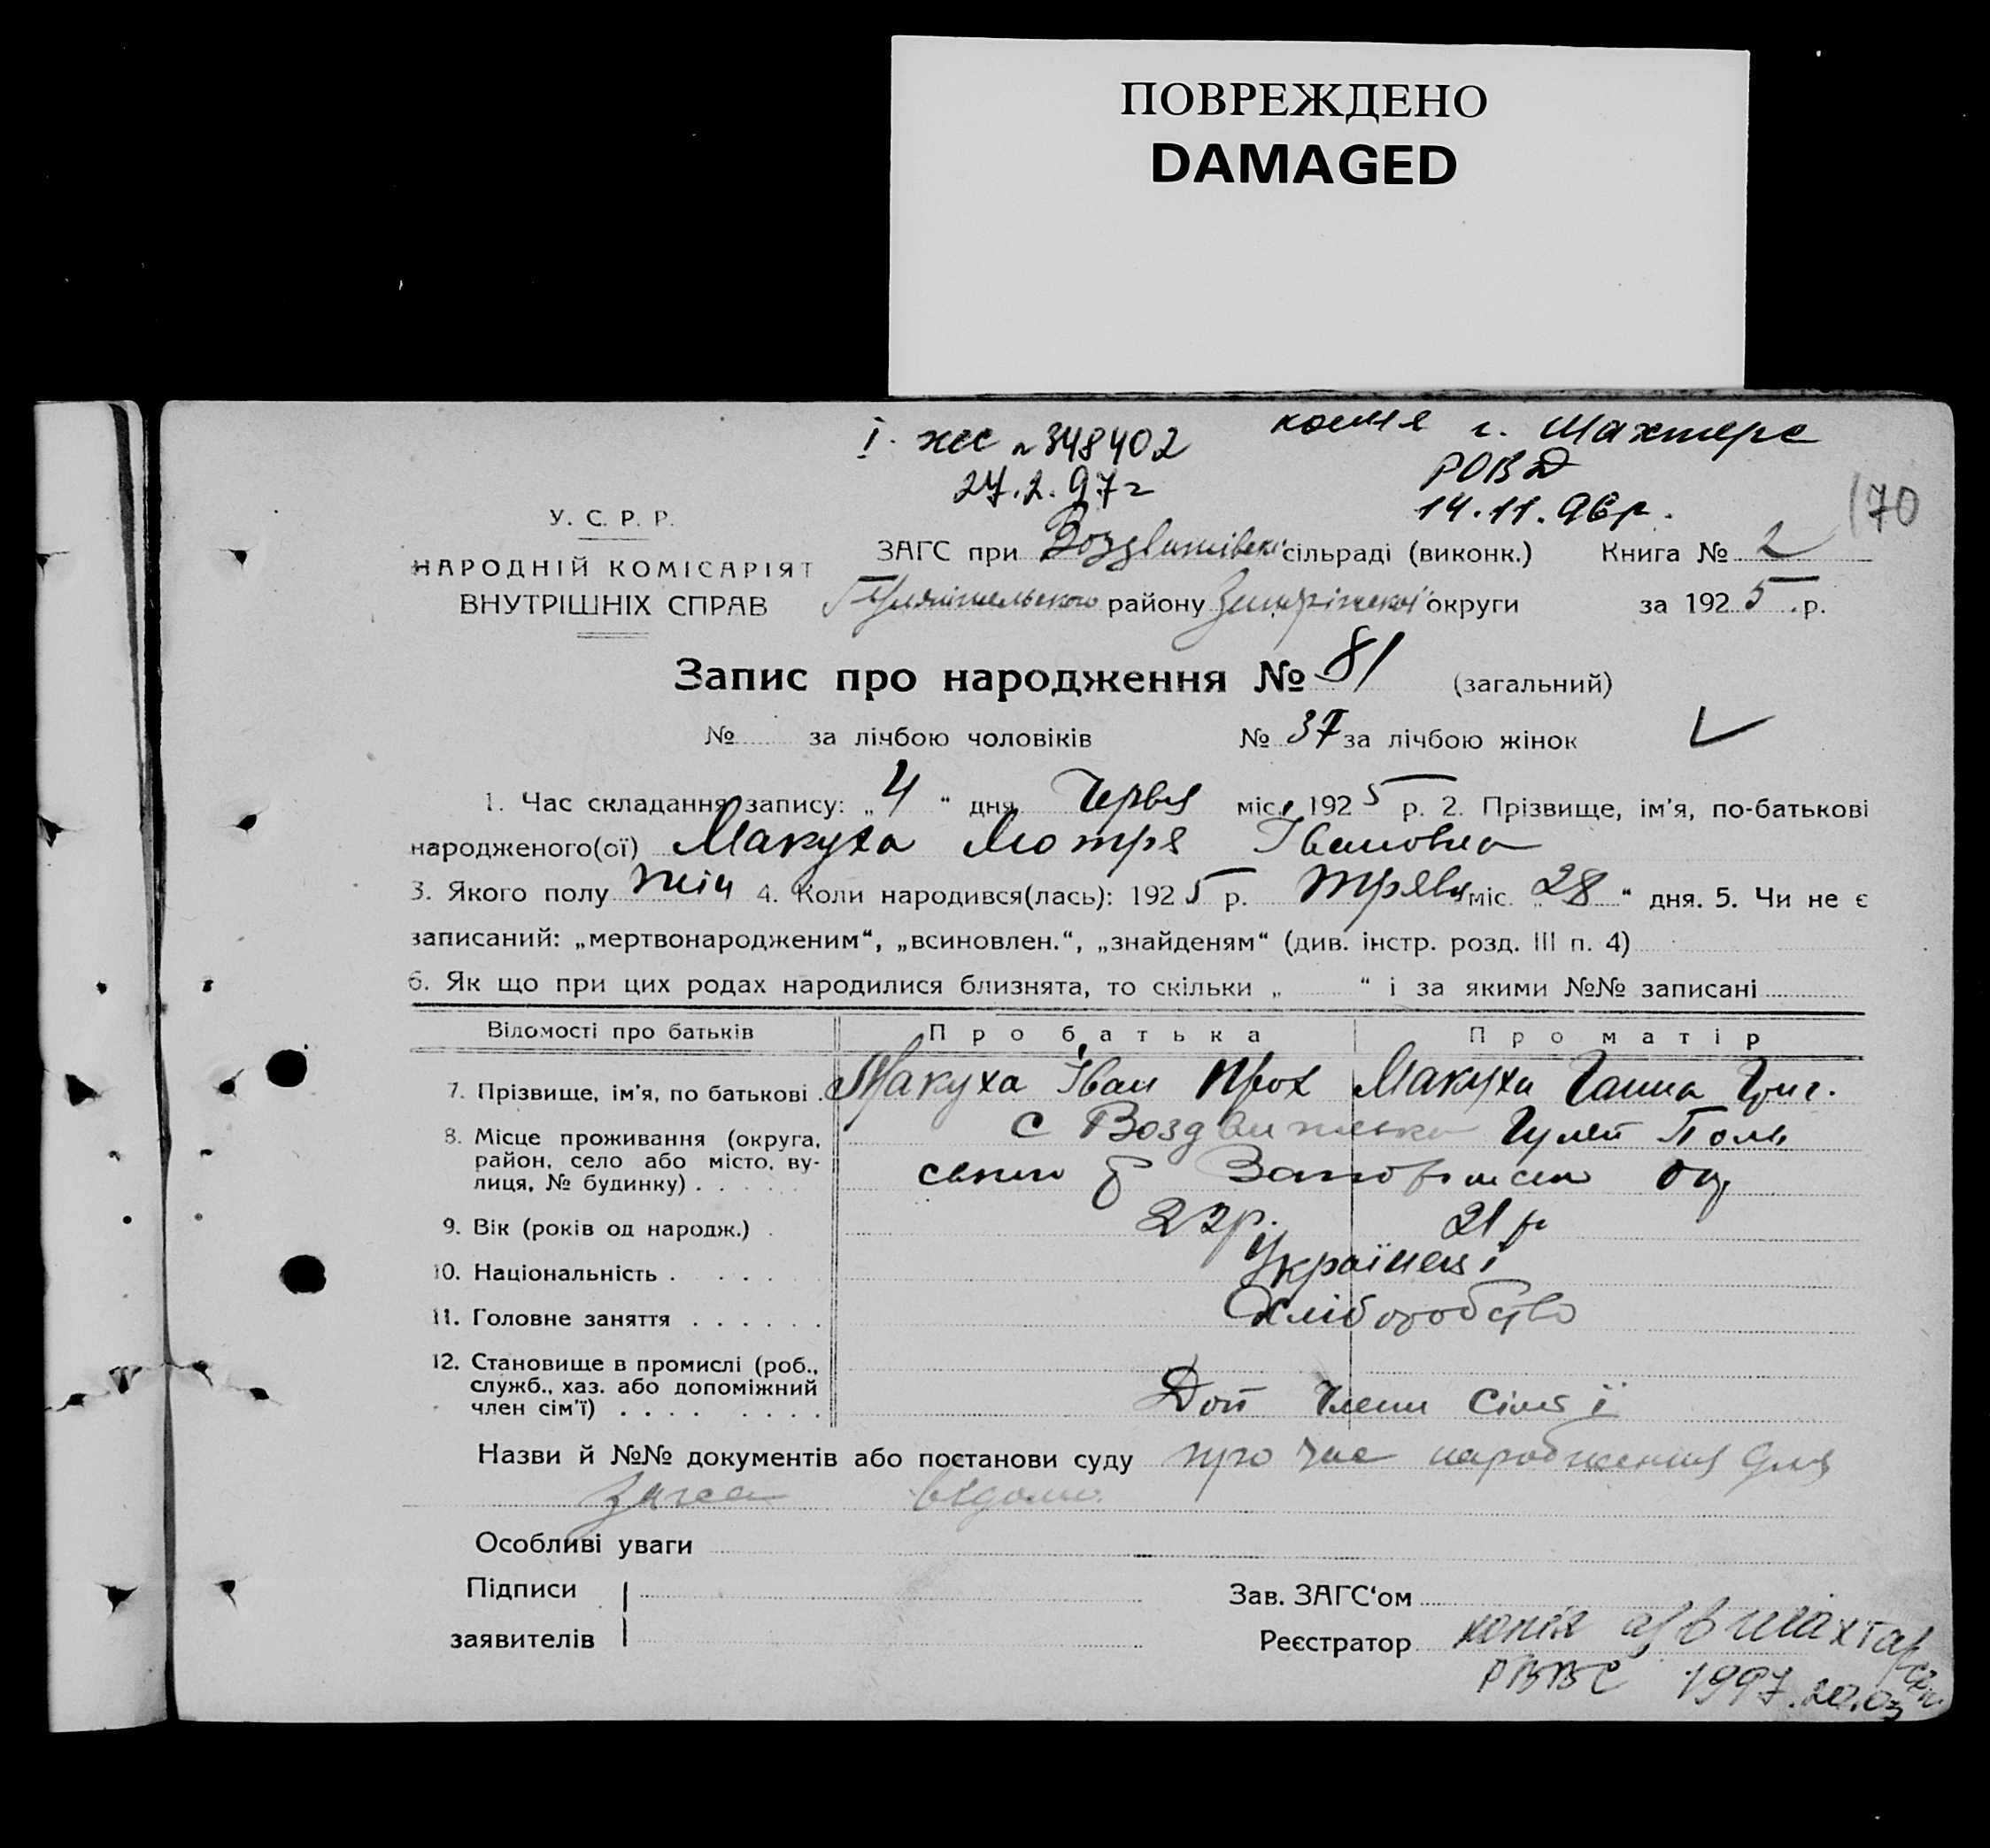 ПОВРЕЖДЕНО
DAMAGED
І. жс n 348402
27.2.97г
копия г. Шахтерс
РОВД
14.11.96р.
170
У. С. Р. Р.
НАРОДНІЙ КОМІСАРІЯТ
ВНУТРІШНІХ СПРАВ
ЗАГС при Воздвижівські сільраді (виконк.) Книга № 2
району округи за 1925 р.
Запис про народження № 81 (загальний)
№ за лічбою чоловіків № 37 за лічбою жінок
1. Час складання запису: „4“ дня Червня міся 1925 р. 2. Прізвище, ім'я, по-батькові
народженого(ої) Макуха Мотря Івановна
3. Якого полу жін 4. Коли народився(лась): 1925 р. Травн міс. „28“ дня. 5. Чи не є
записаний: „мертвонародженим“, „всиновлен.“, „знайденям“ (див. інстр. розд. III п. 4)
6. Як що при цих родах народилися близнята, то скільки „ “ і за якими №№ записані
Відомості про батьків Про батька Про матір
7. Прізвище, ім'я, по батькові . Макуха Іван Прох Макуха Ганна Григ.
8. Місце проживання (округа, район, село або місто, вулиця, № будинку) . . . . . с Воздвижівка Гуляй Поль
9. Вік (років од народж.) . 22р. 21 р
10. Національність . . . . . Українці
11. Головне заняття . . . . . . Хліборобство
12. Становище в промислі (роб., служб., хаз. або допоміжний член сім'ї) . . . . . . . . Доп Члени Сімї
Назви й №№ документів або постанови суду про час народження для
загса відомо.
Особливі уваги
Підписи
заявителів
Зав. ЗАГС‘ом
Реєстратор
копія в Шахтарськ.
РВВС 1997.20.03